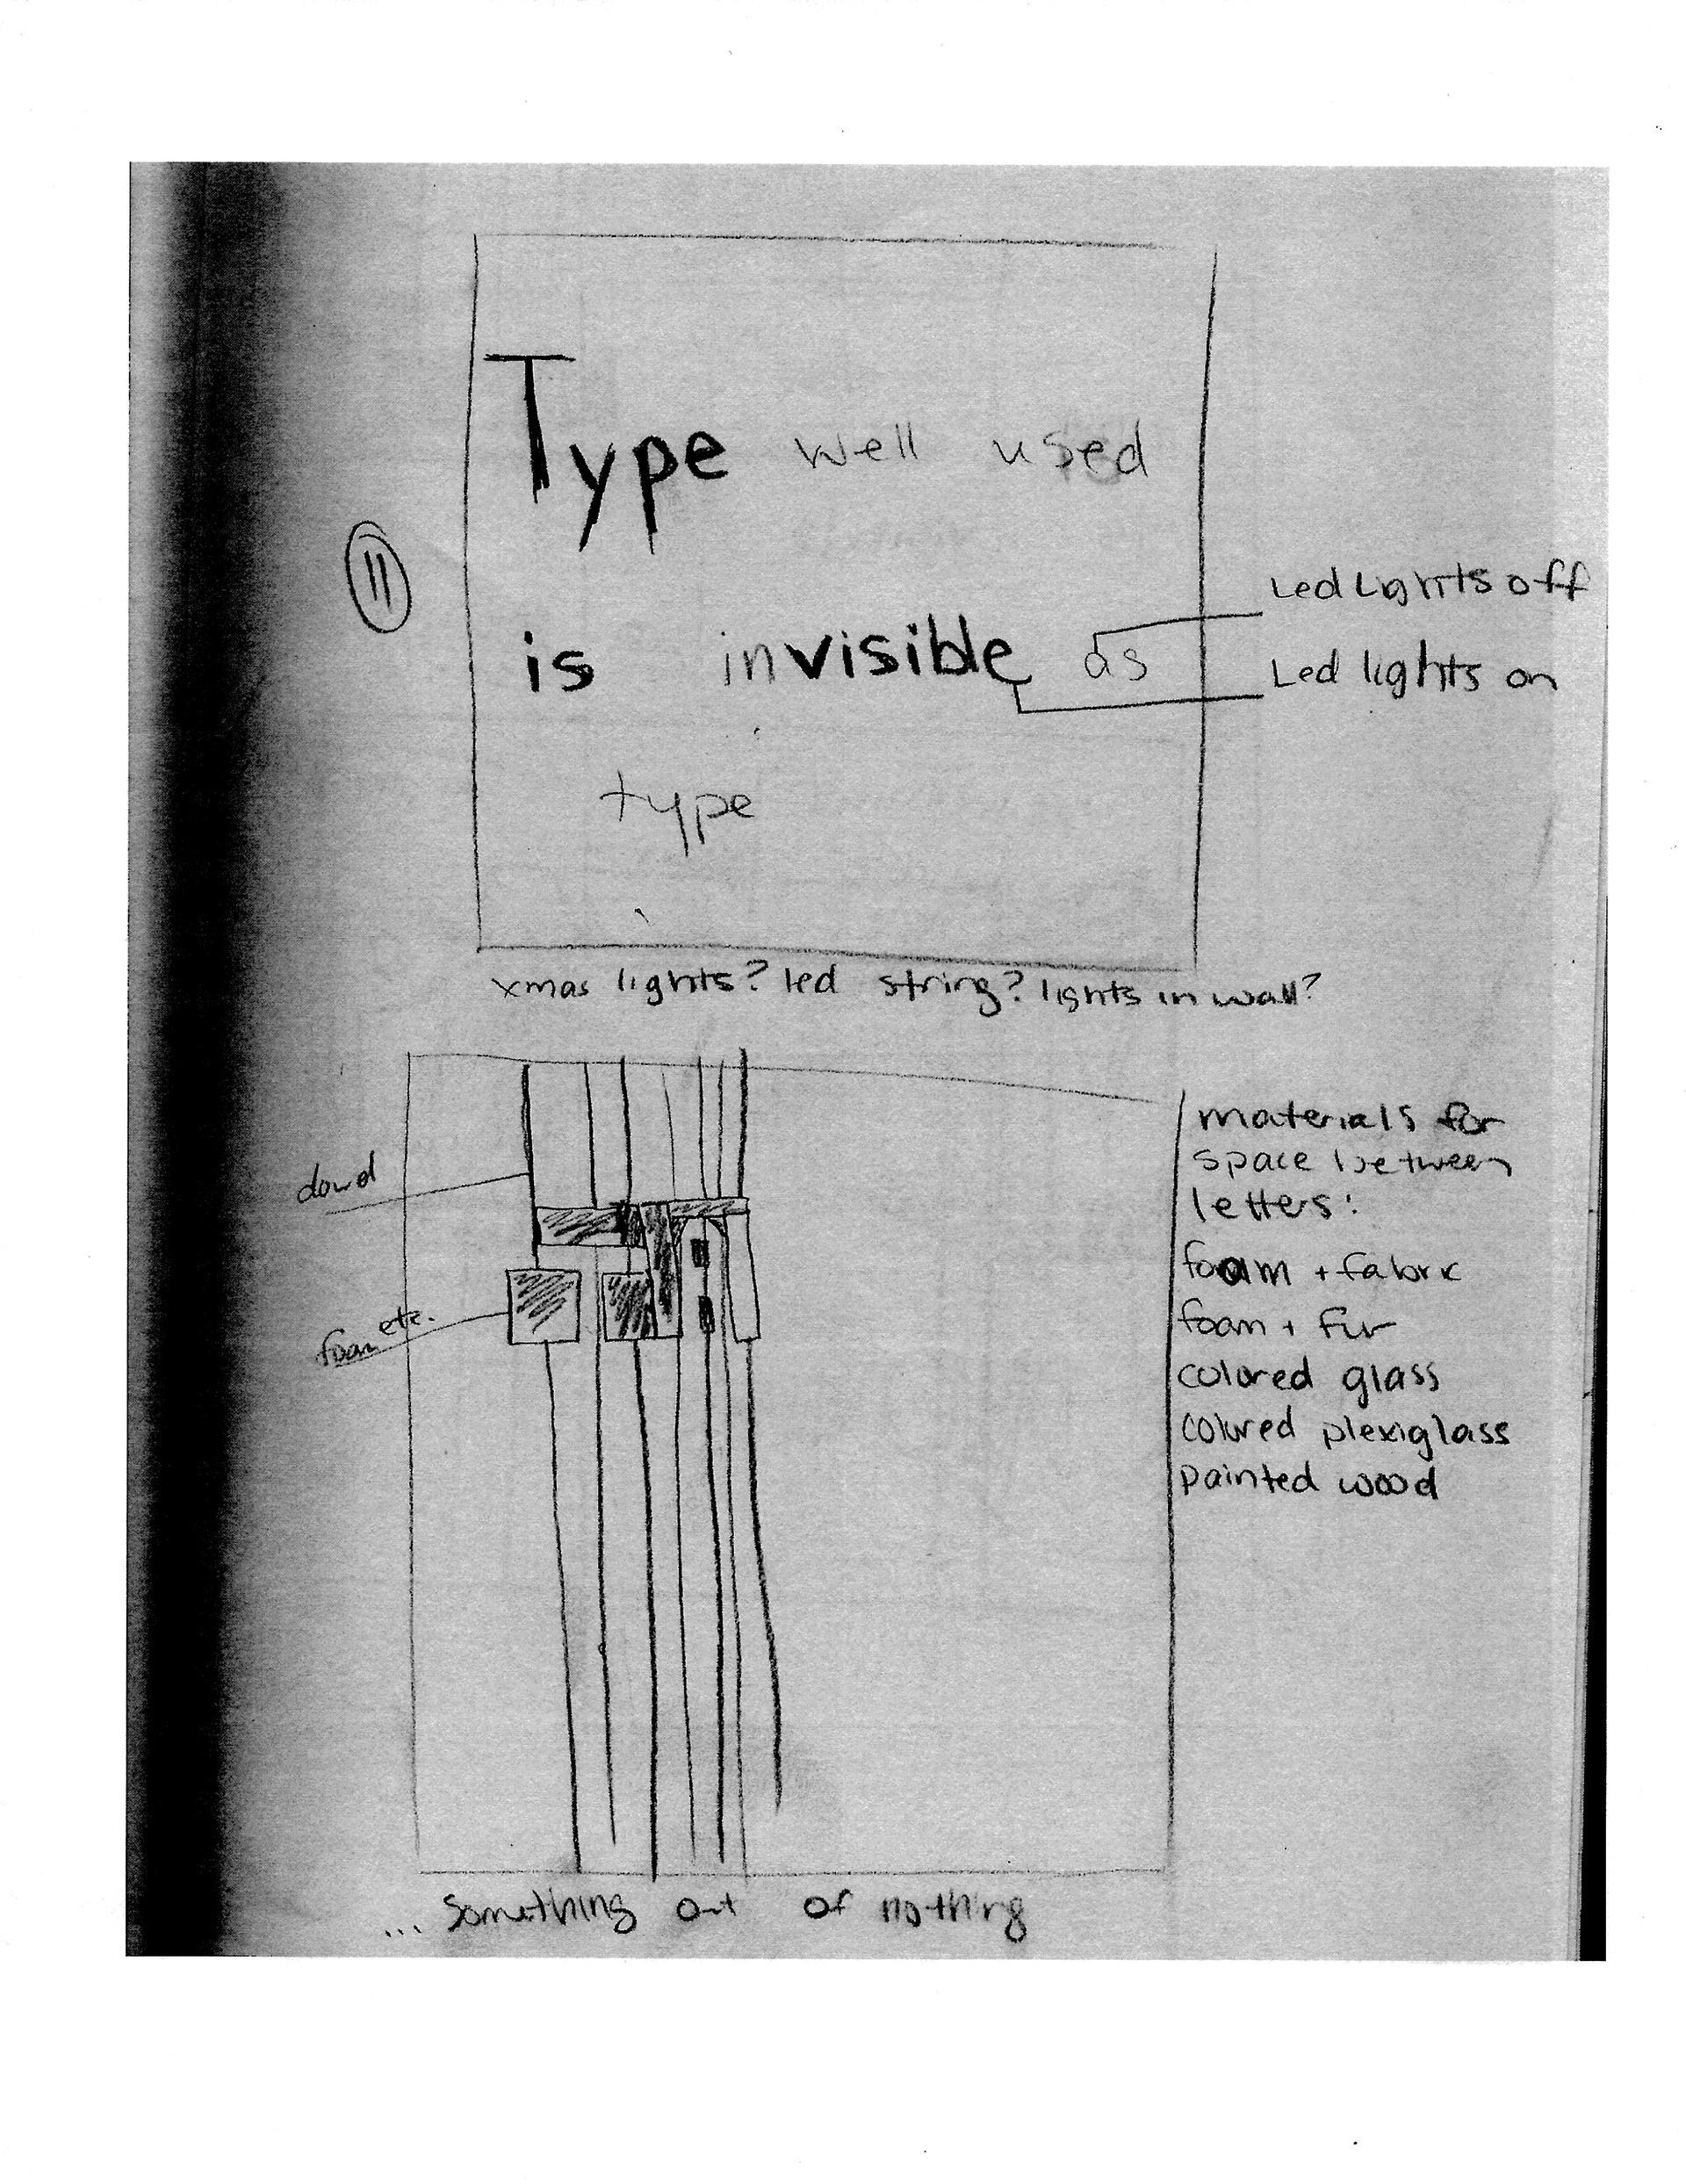 Type well used
11
Led Lights off
is invisible as
Led lights on
type
xmas lights? led string? lights in wall?
materials for
space between
letters:
dowd
foam + fabric
etc.
foam
foam + fur
colored glass
colored plexiglass
painted wood
... something out of nothing